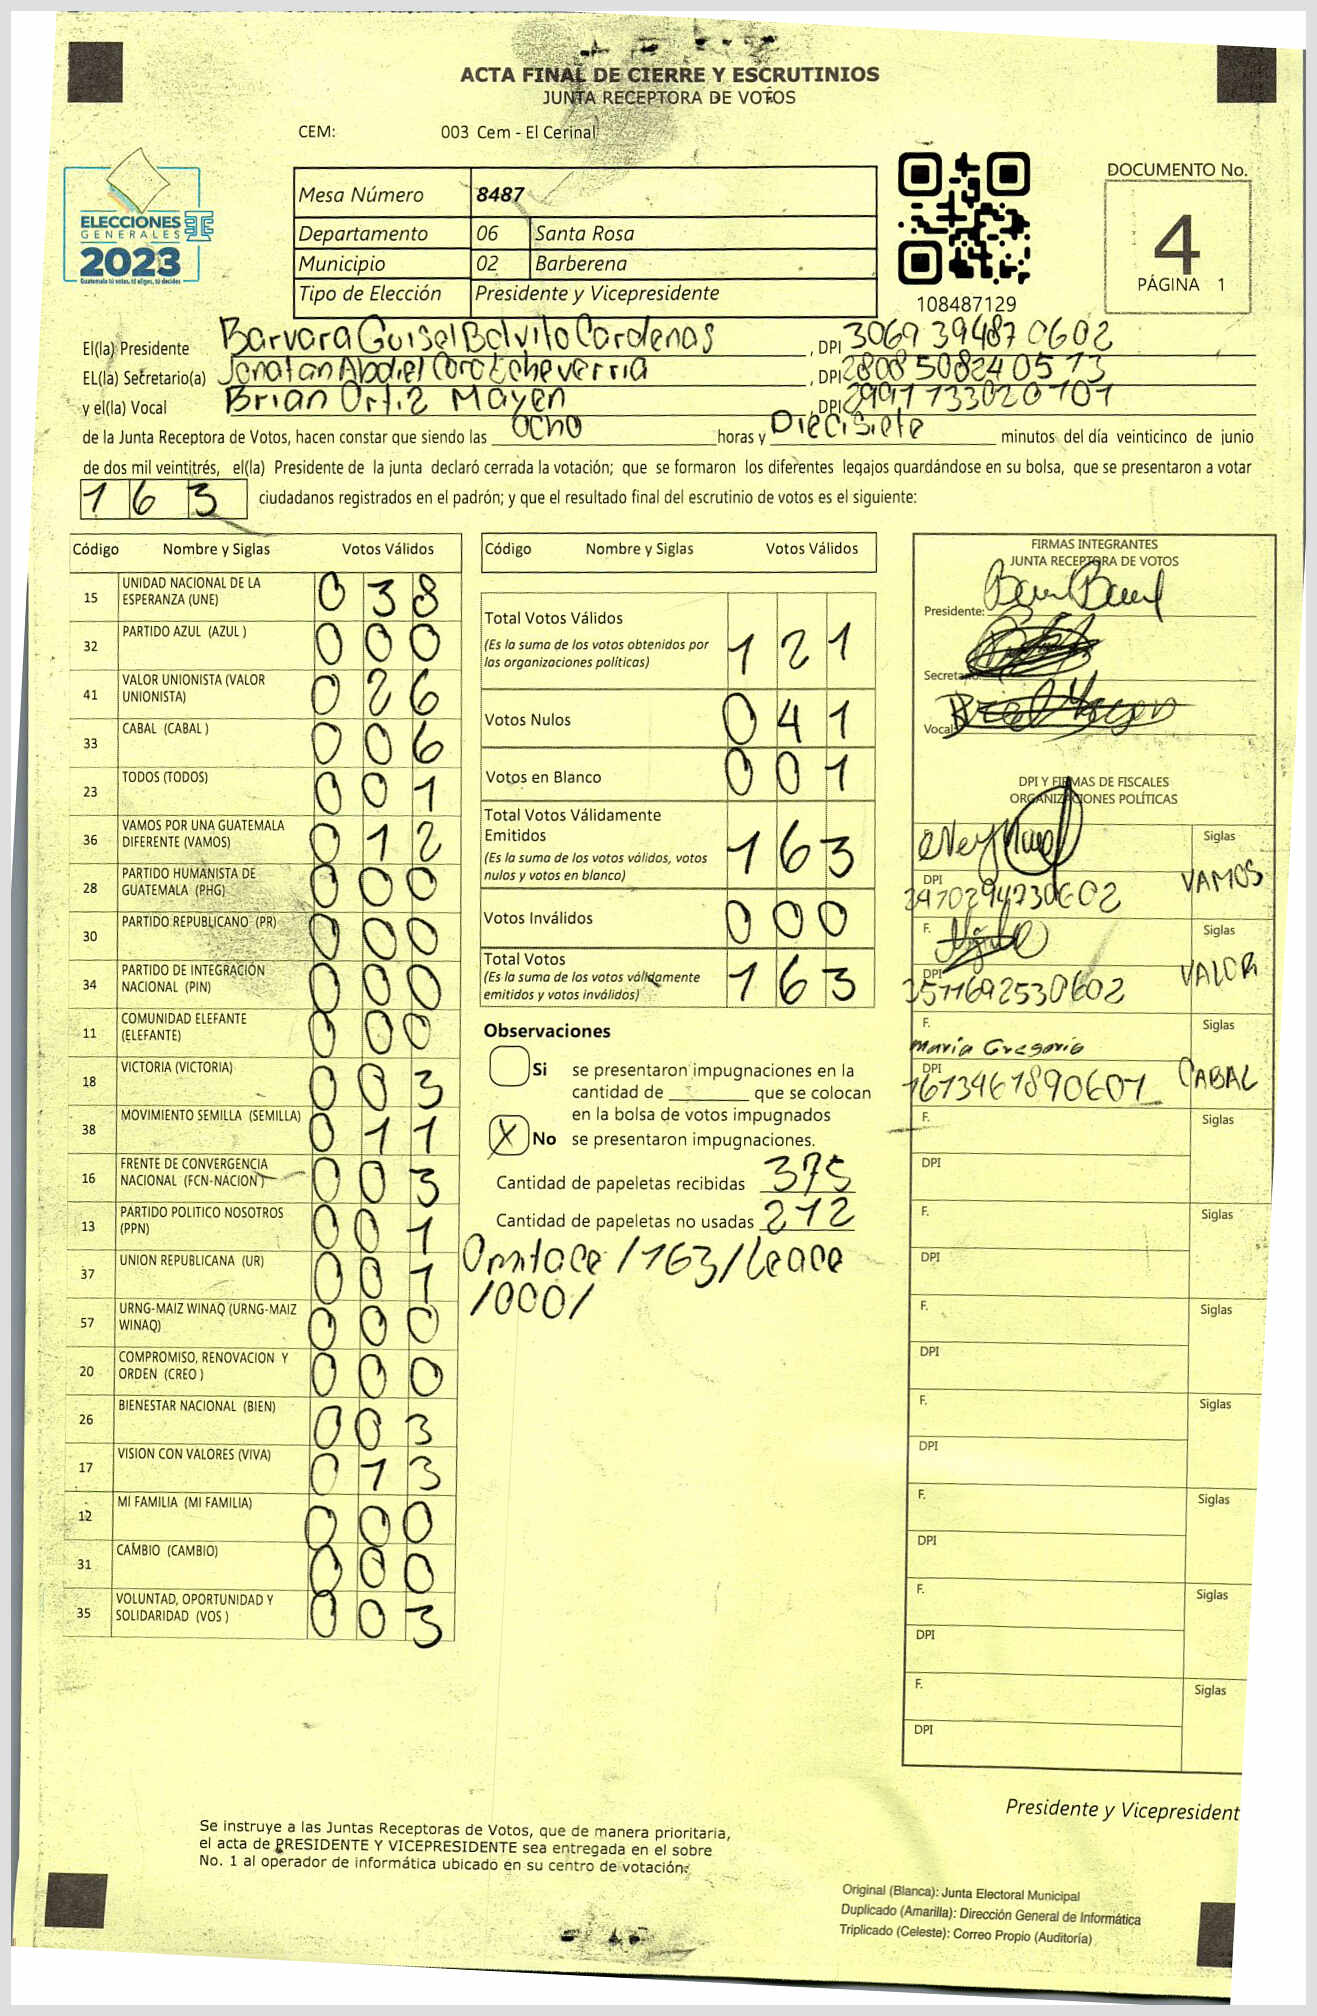 ACTA FINAL DE CIERRE Y ESCRUTINIOS
JUNTA RECEPTORA DE VOTOS
CEM: 003 Cem - El Cerinal
ELECCIONES
GENERALES
2023
Guatemala tú votas, tú eliges, tú decides
Mesa Número 8487
Departamento 06 Santa Rosa
Municipio 02 Barberena
Tipo de Elección Presidente y Vicepresidente
108487129
DOCUMENTO No.
4
PÁGINA 1
El(la) Presidente Barvara Guisel Bolvito Cardenas, DPI 3069 39487 0602
EL(la) Secretario(a) Jonatan Abdiel Coro Echeverria, DPI 2808 50824 0513
y el(la) Vocal Brian Ortiz Mayen, DPI 2991 73302 0101
de la Junta Receptora de Votos, hacen constar que siendo las ocho horas y Diecisiete minutos del día veinticinco de junio
de dos mil veintitrés, el(la) Presidente de la junta declaró cerrada la votación; que se formaron los diferentes legajos quardándose en su bolsa, que se presentaron a votar
163 ciudadanos registrados en el padrón; y que el resultado final del escrutinio de votos es el siguiente:
Código Nombre y Siglas Votos Válidos
15 UNIDAD NACIONAL DE LA ESPERANZA (UNE) 038
32 PARTIDO AZUL (AZUL ) 000
41 VALOR UNIONISTA (VALOR UNIONISTA) 026
33 CABAL (CABAL ) 006
23 TODOS (TODOS) 001
36 VAMOS POR UNA GUATEMALA DIFERENTE (VAMOS) 012
28 PARTIDO HUMANISTA DE GUATEMALA (PHG) 000
30 PARTIDO REPUBLICANO (PR) 000
34 PARTIDO DE INTEGRACIÓN NACIONAL (PIN) 000
11 COMUNIDAD ELEFANTE (ELEFANTE) 000
18 VICTORIA (VICTORIA) 003
38 MOVIMIENTO SEMILLA (SEMILLA) 011
16 FRENTE DE CONVERGENCIA NACIONAL (FCN-NACION ) 003
13 PARTIDO POLITICO NOSOTROS (PPN) 001
37 UNION REPUBLICANA (UR) 001
57 URNG-MAIZ WINAQ (URNG-MAIZ WINAQ) 000
20 COMPROMISO, RENOVACION Y ORDEN (CREO ) 000
26 BIENESTAR NACIONAL (BIEN) 003
17 VISION CON VALORES (VIVA) 013
12 MI FAMILIA (MI FAMILIA) 000
31 CAMBIO (CAMBIO) 000
35 VOLUNTAD, OPORTUNIDAD Y SOLIDARIDAD (VOS ) 003
Código Nombre y Siglas Votos Válidos
Total Votos Válidos 121
(Es la suma de los votos obtenidos por las organizaciones políticas)
Votos Nulos 041
Votos en Blanco 001
Total Votos Válidamente Emitidos 163
(Es la suma de los votos válidos, votos nulos y votos en blanco)
Votos Inválidos 000
Total Votos 163
(Es la suma de los votos válidamente emitidos y votos inválidos)
Observaciones
Si se presentaron impugnaciones en la
cantidad de ________ que se colocan
en la bolsa de votos impugnados
X No se presentaron impugnaciones.
Cantidad de papeletas recibidas 375
Cantidad de papeletas no usadas 212
/163/
/000/
FIRMAS INTEGRANTES
JUNTA RECEPTORA DE VOTOS
Presidente:
Vocal
DPI Y FIRMAS DE FISCALES
ORGANIZACIONES POLÍTICAS
Siglas VAMOS
DPI
F. Siglas VALOR
DPI
F. Maria Gregorio Siglas CABAL
DPI
F. Siglas
DPI
F. Siglas
DPI
F. Siglas
DPI
F. Siglas
DPI
F. Siglas
DPI
F. Siglas
DPI
F. Siglas
DPI
Presidente y Vicepresident
Se instruye a las Juntas Receptoras de Votos, que de manera prioritaria,
el acta de PRESIDENTE Y VICEPRESIDENTE sea entregada en el sobre
No. 1 al operador de informática ubicado en su centro de votación.
Original (Blanca): Junta Electoral Municipal
Duplicado (Amarilla): Dirección General de Informática
Triplicado (Celeste): Correo Propio (Auditoría)